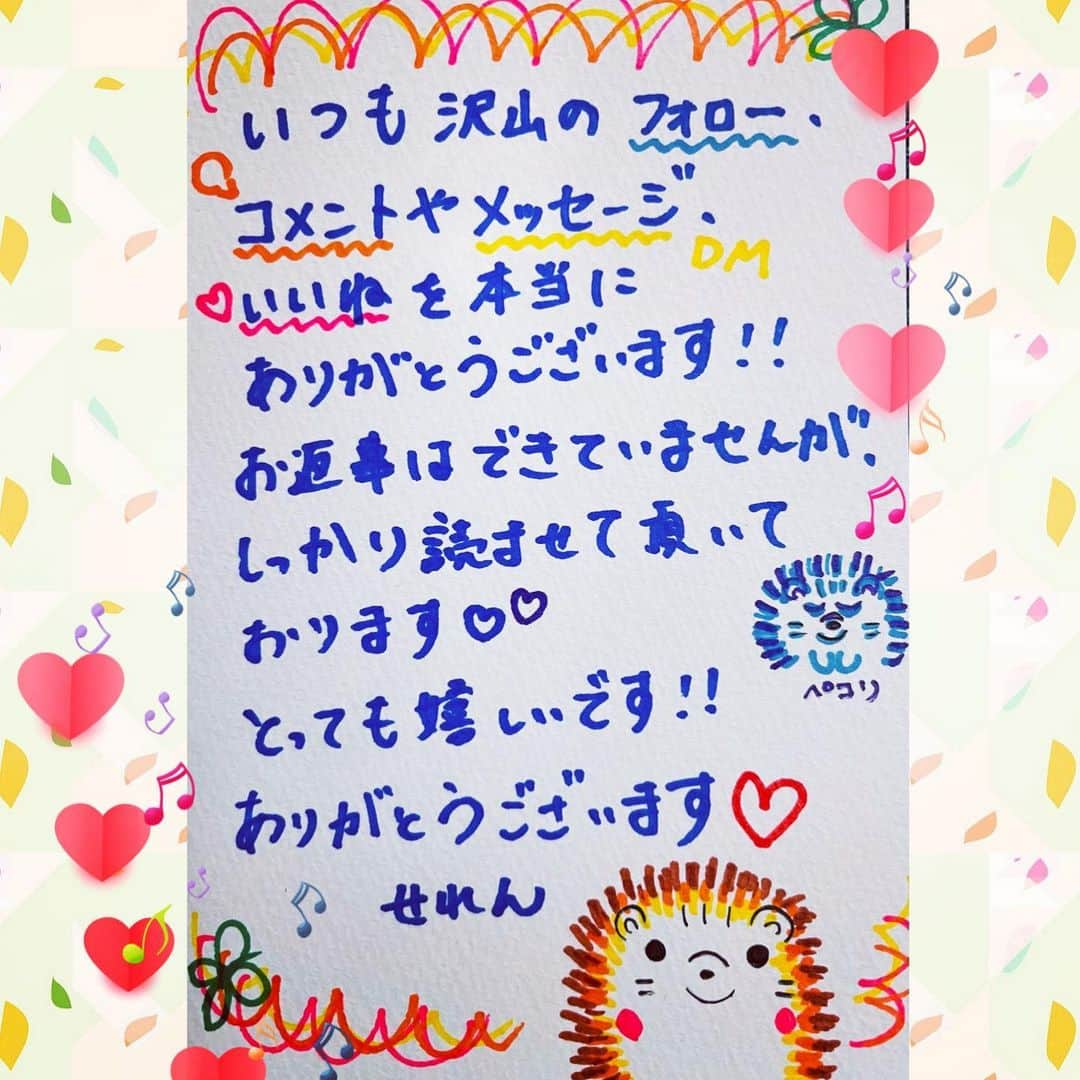 いつも沢山のフォロー、
コメントやメッセージ、
DM
いいねを本当に
ありがとうございます!!
お返事はできていませんが、
しっかり読ませて頂いて
おります♡♡
ペコリ
とっても嬉しいです!!
ありがとうございます♡
せれん